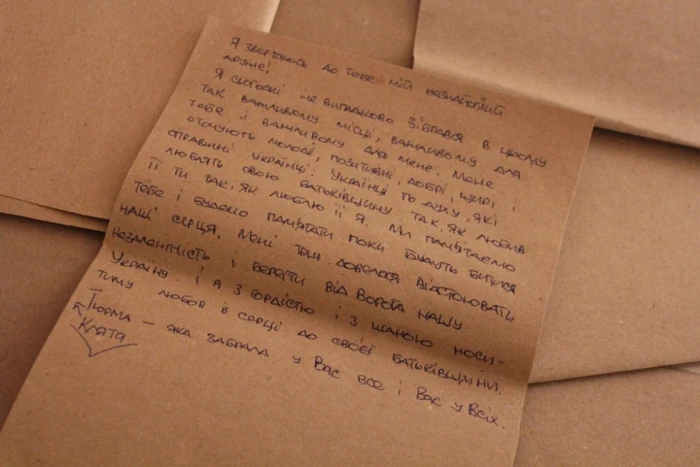 Я звертаюсь до тебе мій незнайомий
друже!
Я сьогодні не випадково зібрався в цьому
так важливому місці, важливому для
тебе і важливому для мене. Мене
оточують молоді, позитивні, добрі, щирі і
справжні українці. Українці по духу, які
люблять свою батьківщину так, як любив
її ти так, як люблю її я. Ми пам'ятаємо
тебе і будемо пам'ятати поки будуть битися
наші серця. Мені теж довелося відстоювати
незалежність і берегти від ворога нашу
Україну і я з гордістю і з шаною носи-
тиму любов в серці до своєї батьківщини.
Тюрма – яка забрала у Вас все і Вас у Всіх.
Клята